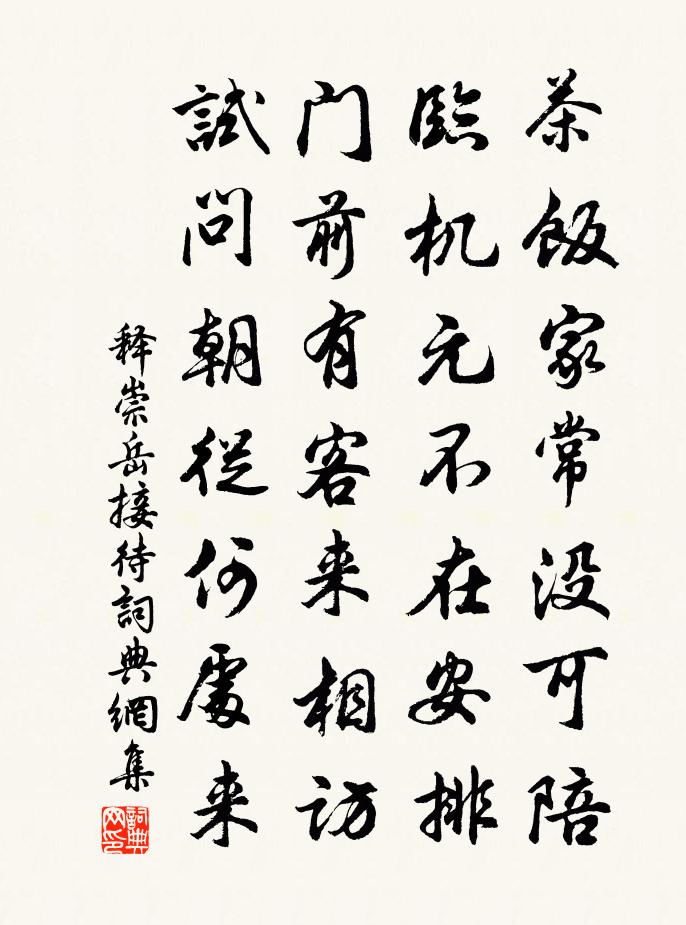 茶飯家常没可陪
臨机元不在安排
门前有客来相访
試问朝從何處来
释崇岳接待詞典網集
詞典
网印